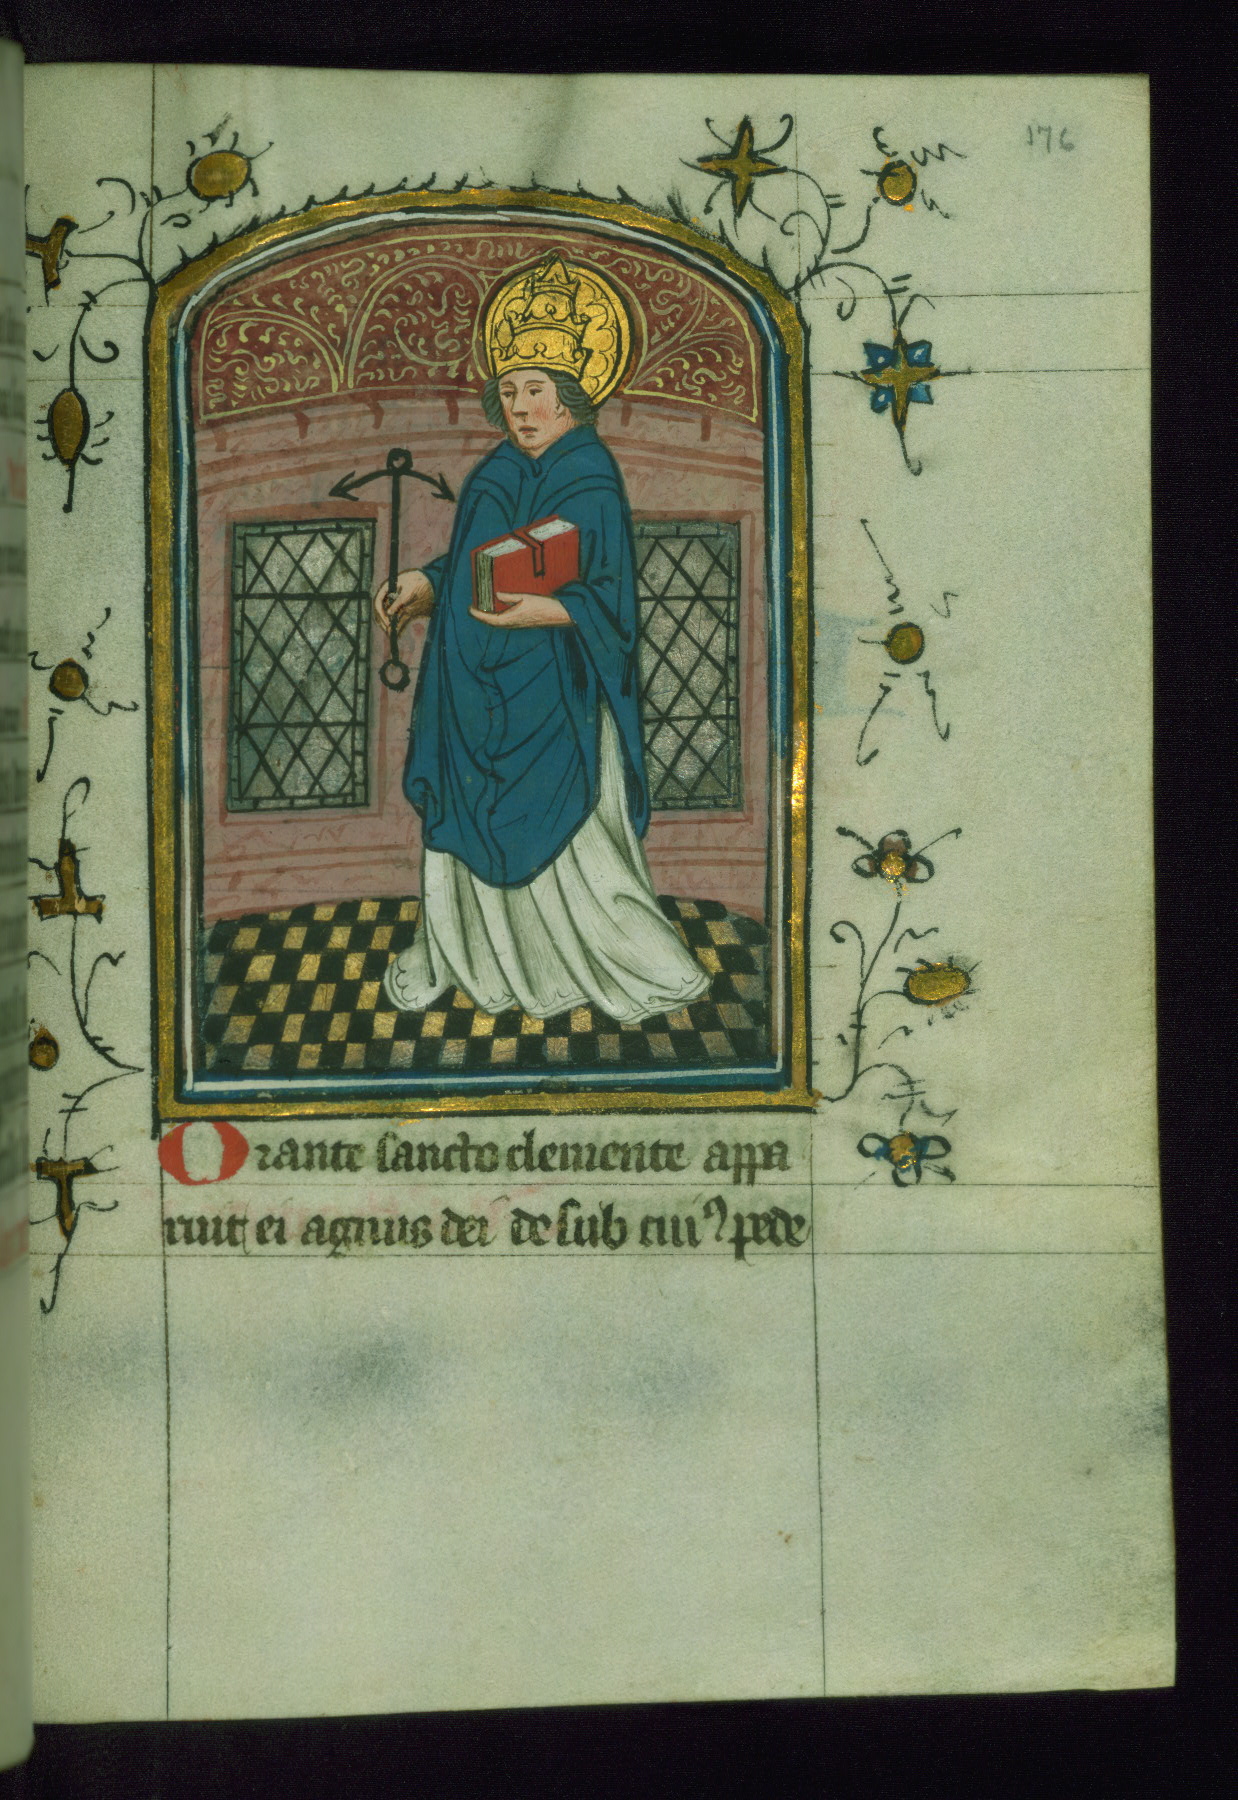 176
Orante sancto clemente appa
ruit ei agnus dei de sub cuiꝰ pede